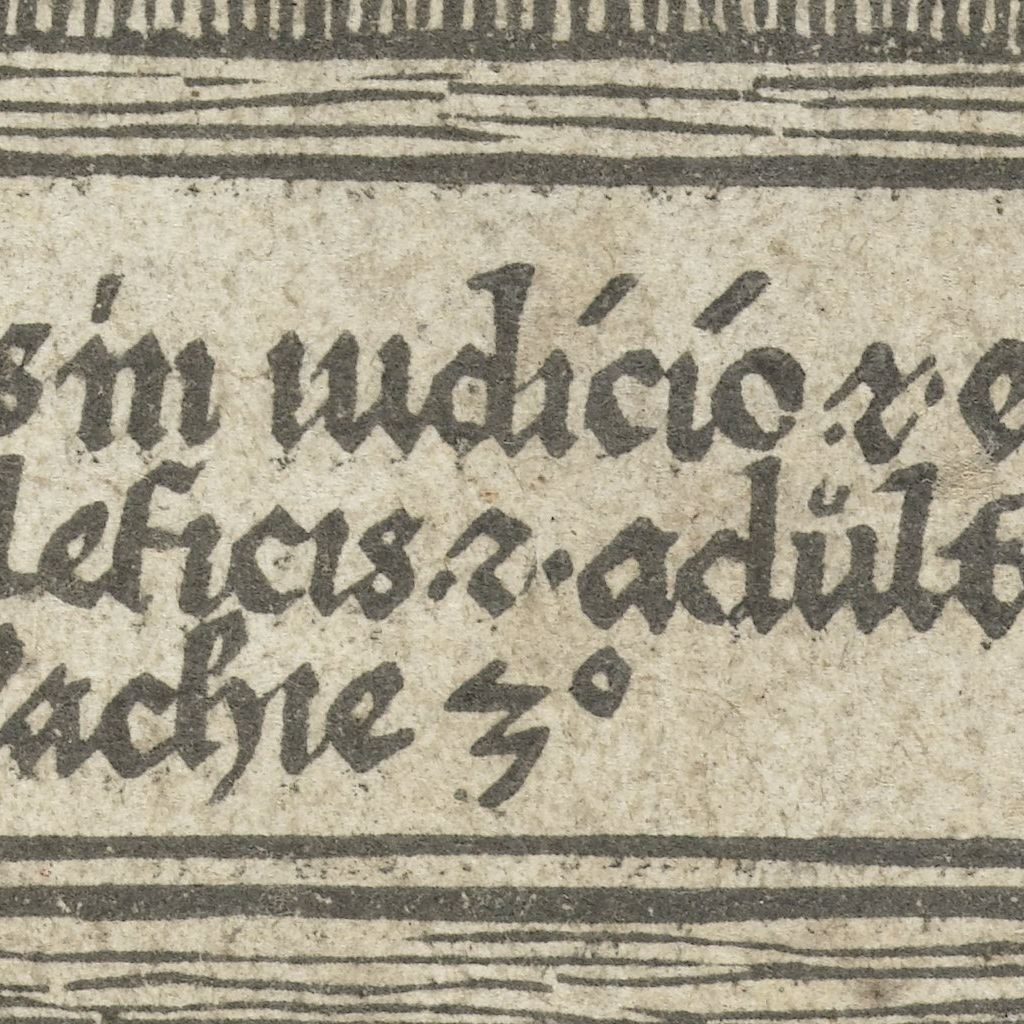 s in iudicio .⁊. e
leficis .⁊. adult
achie 3°